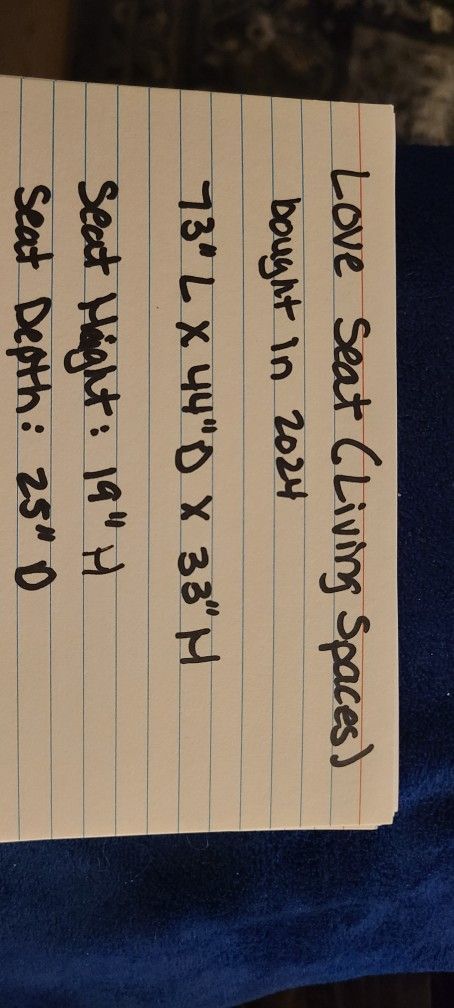 Love Seat (Living Spaces)
bought in 2024
73" L X 44" D X 33" H
Seat Height: 19" H
Seat Depth: 25" D